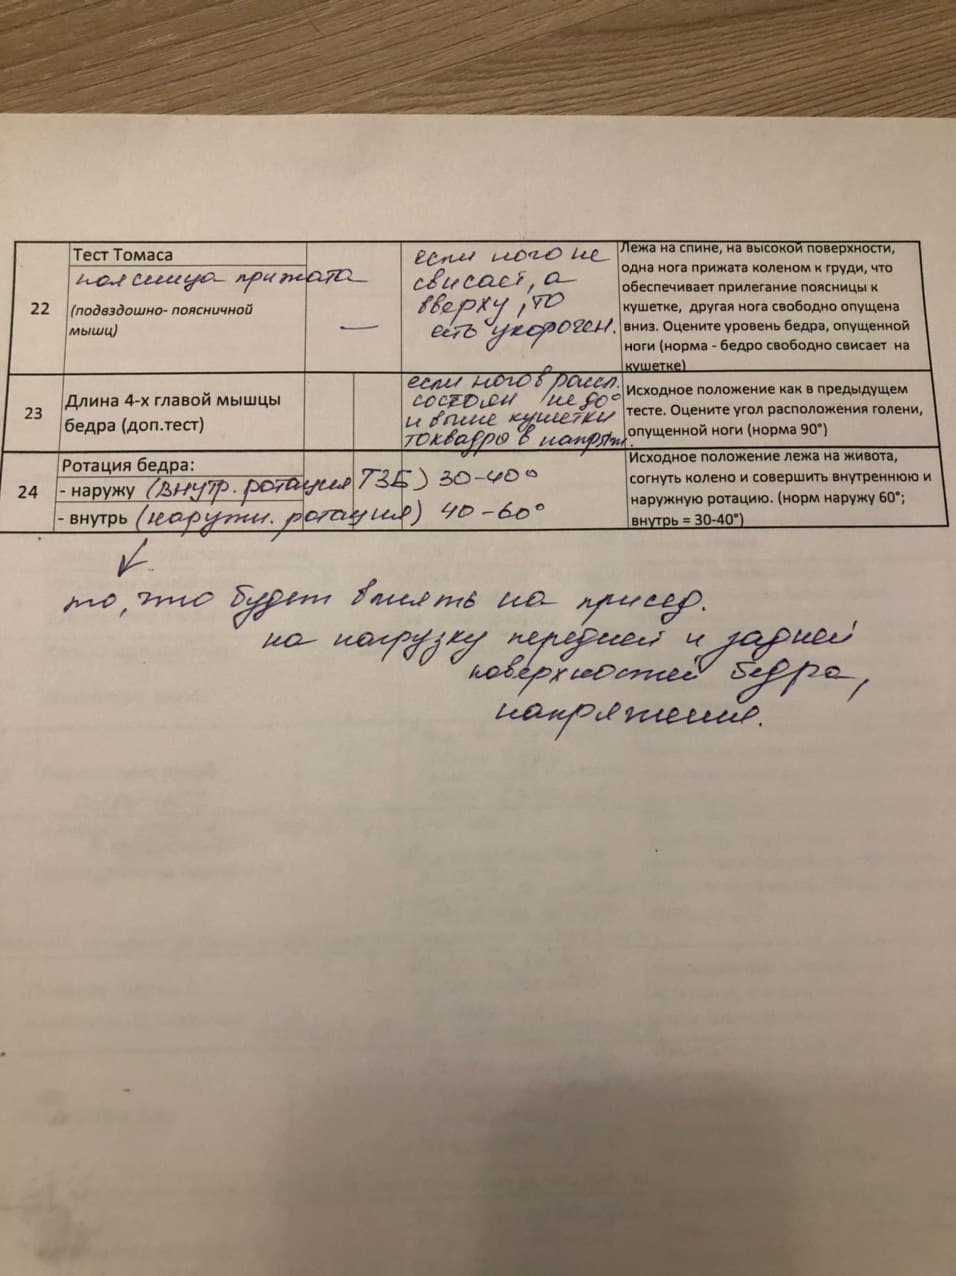 22
Тест Томаса
поясница прижата
(подвздошно- поясничной
мышц)
—
если нога не
свисает, а
вверху, то
есть укорочен.
Лежа на спине, на высокой поверхности,
одна нога прижата коленом к груди, что
обеспечивает прилегание поясницы к
кушетке, другая нога свободно опущена
вниз. Оцените уровень бедра, опущенной
ноги (норма - бедро свободно свисает на
кушетке)
23
Длина 4-х главой мышцы
бедра (доп.тест)
если нога в рассл.
состоян не 90°
и выше кушетки
то квадро в напряж.
Исходное положение как в предыдущем
тесте. Оцените угол расположения голени,
опущенной ноги (норма 90°)
24
Ротация бедра:
- наружу (внутр. ротация ТЗБ) 30-40°
- внутрь (наружн. ротация) 40-60°
Исходное положение лежа на живота,
согнуть колено и совершить внутреннюю и
наружную ротацию. (норм наружу 60°;
внутрь = 30-40°)
то, что будет влиять на присед.
на нагрузку передней и задней
поверхностей бедра,
напряжения.